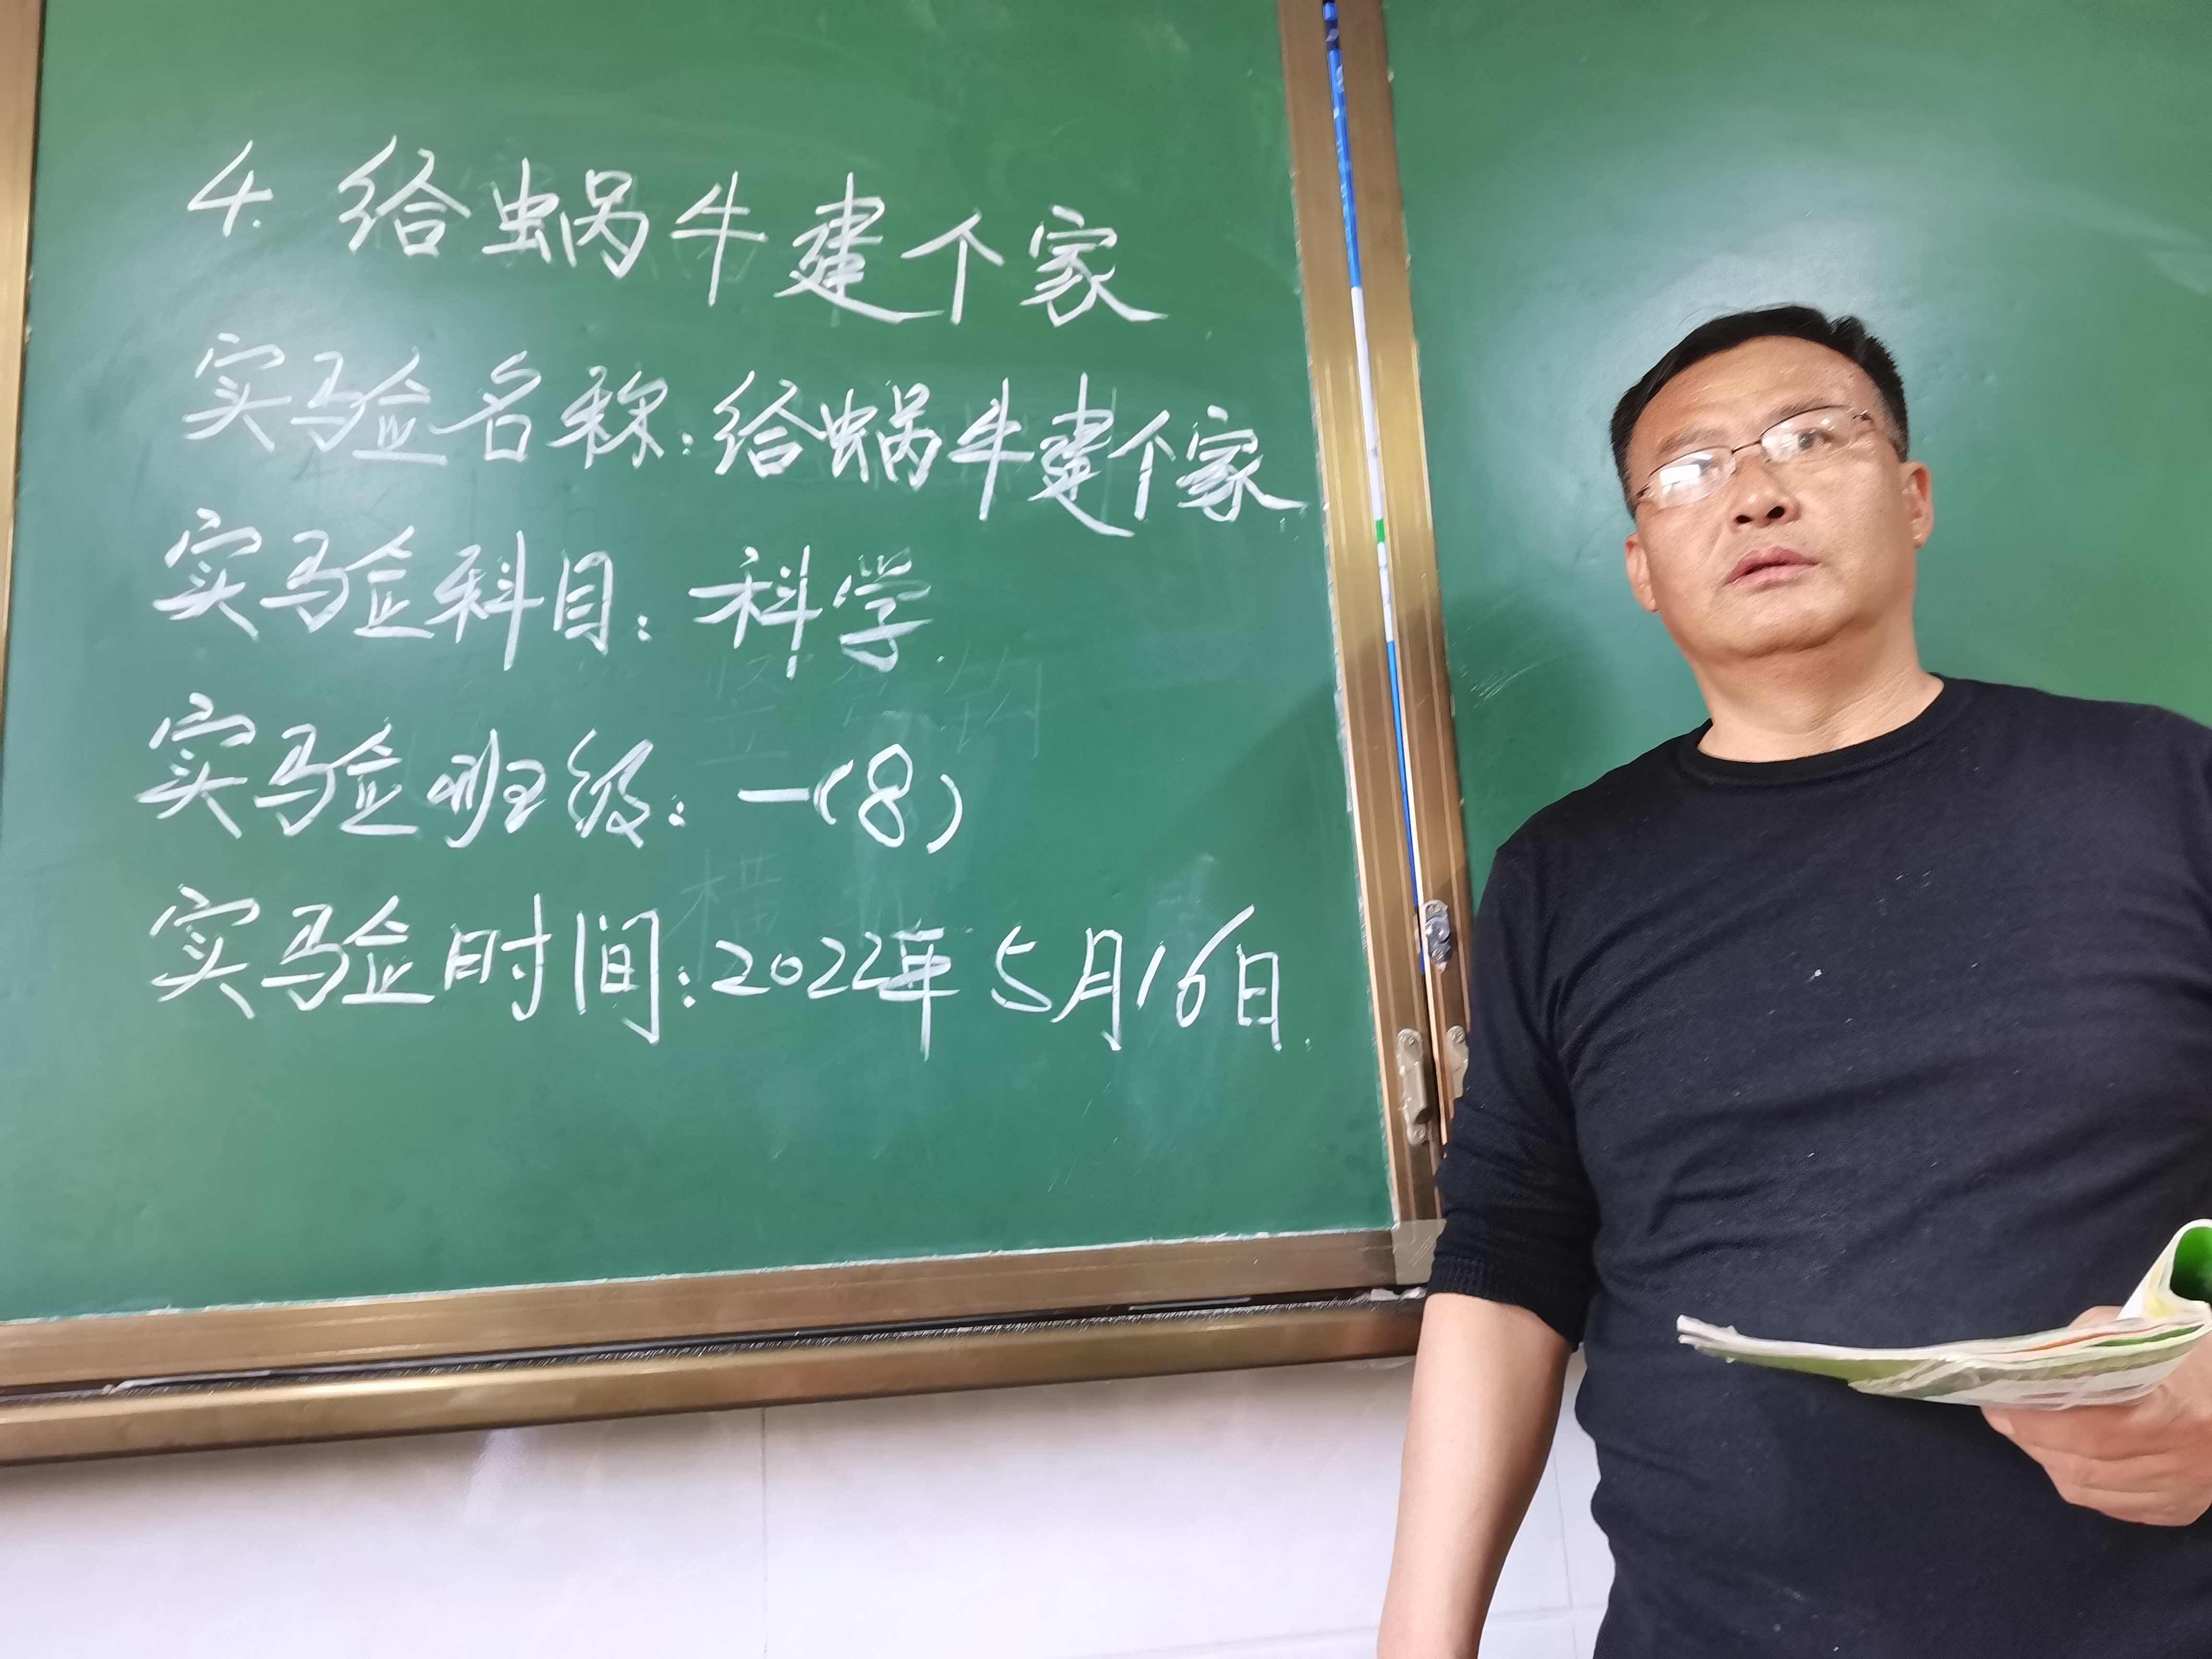 4. 给蜗牛建个家
实验名称:给蜗牛建个家.
实验科目:科学.
实验班级:一(8)
实验时间:2022年5月16日.